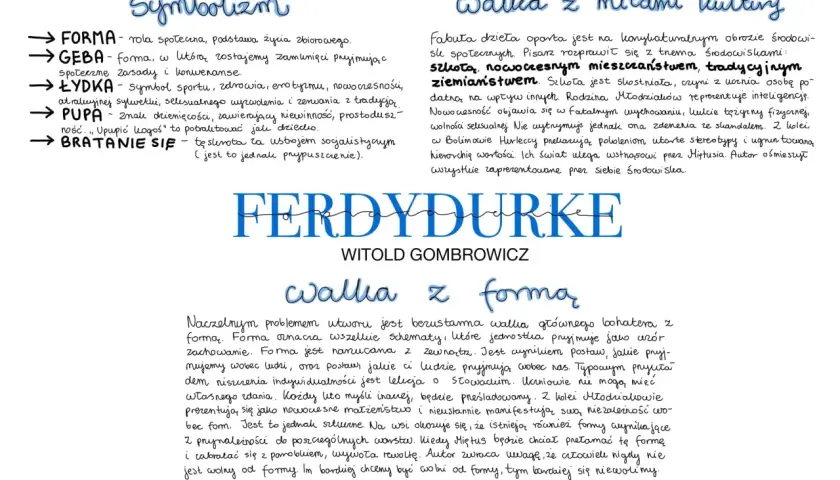 Symbolizm
→ FORMA - rola społeczna, podstawa życia zbiorowego.
→ GĘBA - forma, w którą zostajemy zamknięci przyjmując
społeczne zasady i konwenanse.
→ ŁYDKA - symbol sportu, zdrowia, erotyzmu, nowoczesności,
atrakcyjnej sylwetki, seksualnego wyzwolenia i zerwania z tradycją.
→ PUPA - znak dziecięcości, zawierający niewinność, prostodusz-
ność. „Upupić kogoś" to potraktować jak dziecko.
→ BRATANIE SIĘ - tęsknota za ustrojem socjalistycznym
(jest to jednak przypuszczenie).
Walka z mitami kultury
Fabuła dzieła oparta jest na karykaturalnym obrazie środowi-
sk społecznych. Pisarz rozprawił się z trzema środowiskami:
szkołą, nowoczesnym mieszczaństwem, tradycyjnym
ziemiaństwem. Szkoła jest skostniała, czyni z ucznia osobę po-
datną na wpływ innych. Rodzina Młodziaków reprezentuje inteligencję.
Nowoczesność objawia się w fatalnym wychowaniu, kulcie tężyzny fizycznej,
wolności seksualnej. Nie wytrzymuje jednak ona zderzenia ze skandalem. Z kolei
w Bolimowie Hurleccy przekazują pokoleniom utarte stereotypy i ugruntowaną
hierarchię wartości. Ich świat ulega wstrząsowi przez Miętusa. Autor ośmieszył
wszystkie zaprezentowane przez siebie środowiska.
FERDYDURKE
opracowanie
WITOLD GOMBROWICZ
walka z formą
Naczelnym problemem utworu jest bezustanna walka głównego bohatera z
formą. Forma oznacza wszelkie schematy, które jednostka przyjmuje jako wzór
zachowanie. Forma jest narzucana z zewnątrz. Jest wynikiem postaw, jakie przyj-
mujemy wobec ludzi, oraz postaw, jakie ci ludzie przyjmują wobec nas. Typowym przykła-
dem niszczenia indywidualności jest lekcja o Słowackim. Uczniowie nie mogą mieć
własnego zdania. Każdy kto myśli inaczej, będzie prześladowany. Z kolei Młodziakowie
prezentują się jako nowoczesne małżeństwo i nieustannie manifestują swą niezależność wo-
bec form. Jest to jednak sztuczne. Na wsi okazuje się, że istnieją również formy wynikające
z przynależności do poszczególnych warstw. Kiedy Miętus będzie chciał przełamać tę formę
i zbratać się z parobkiem, wywoła rewoltę. Autor zwraca uwagę, że człowiek nigdy nie
jest wolny od formy. Im bardziej chcemy być wolni od formy, tym bardziej się niewolimy.